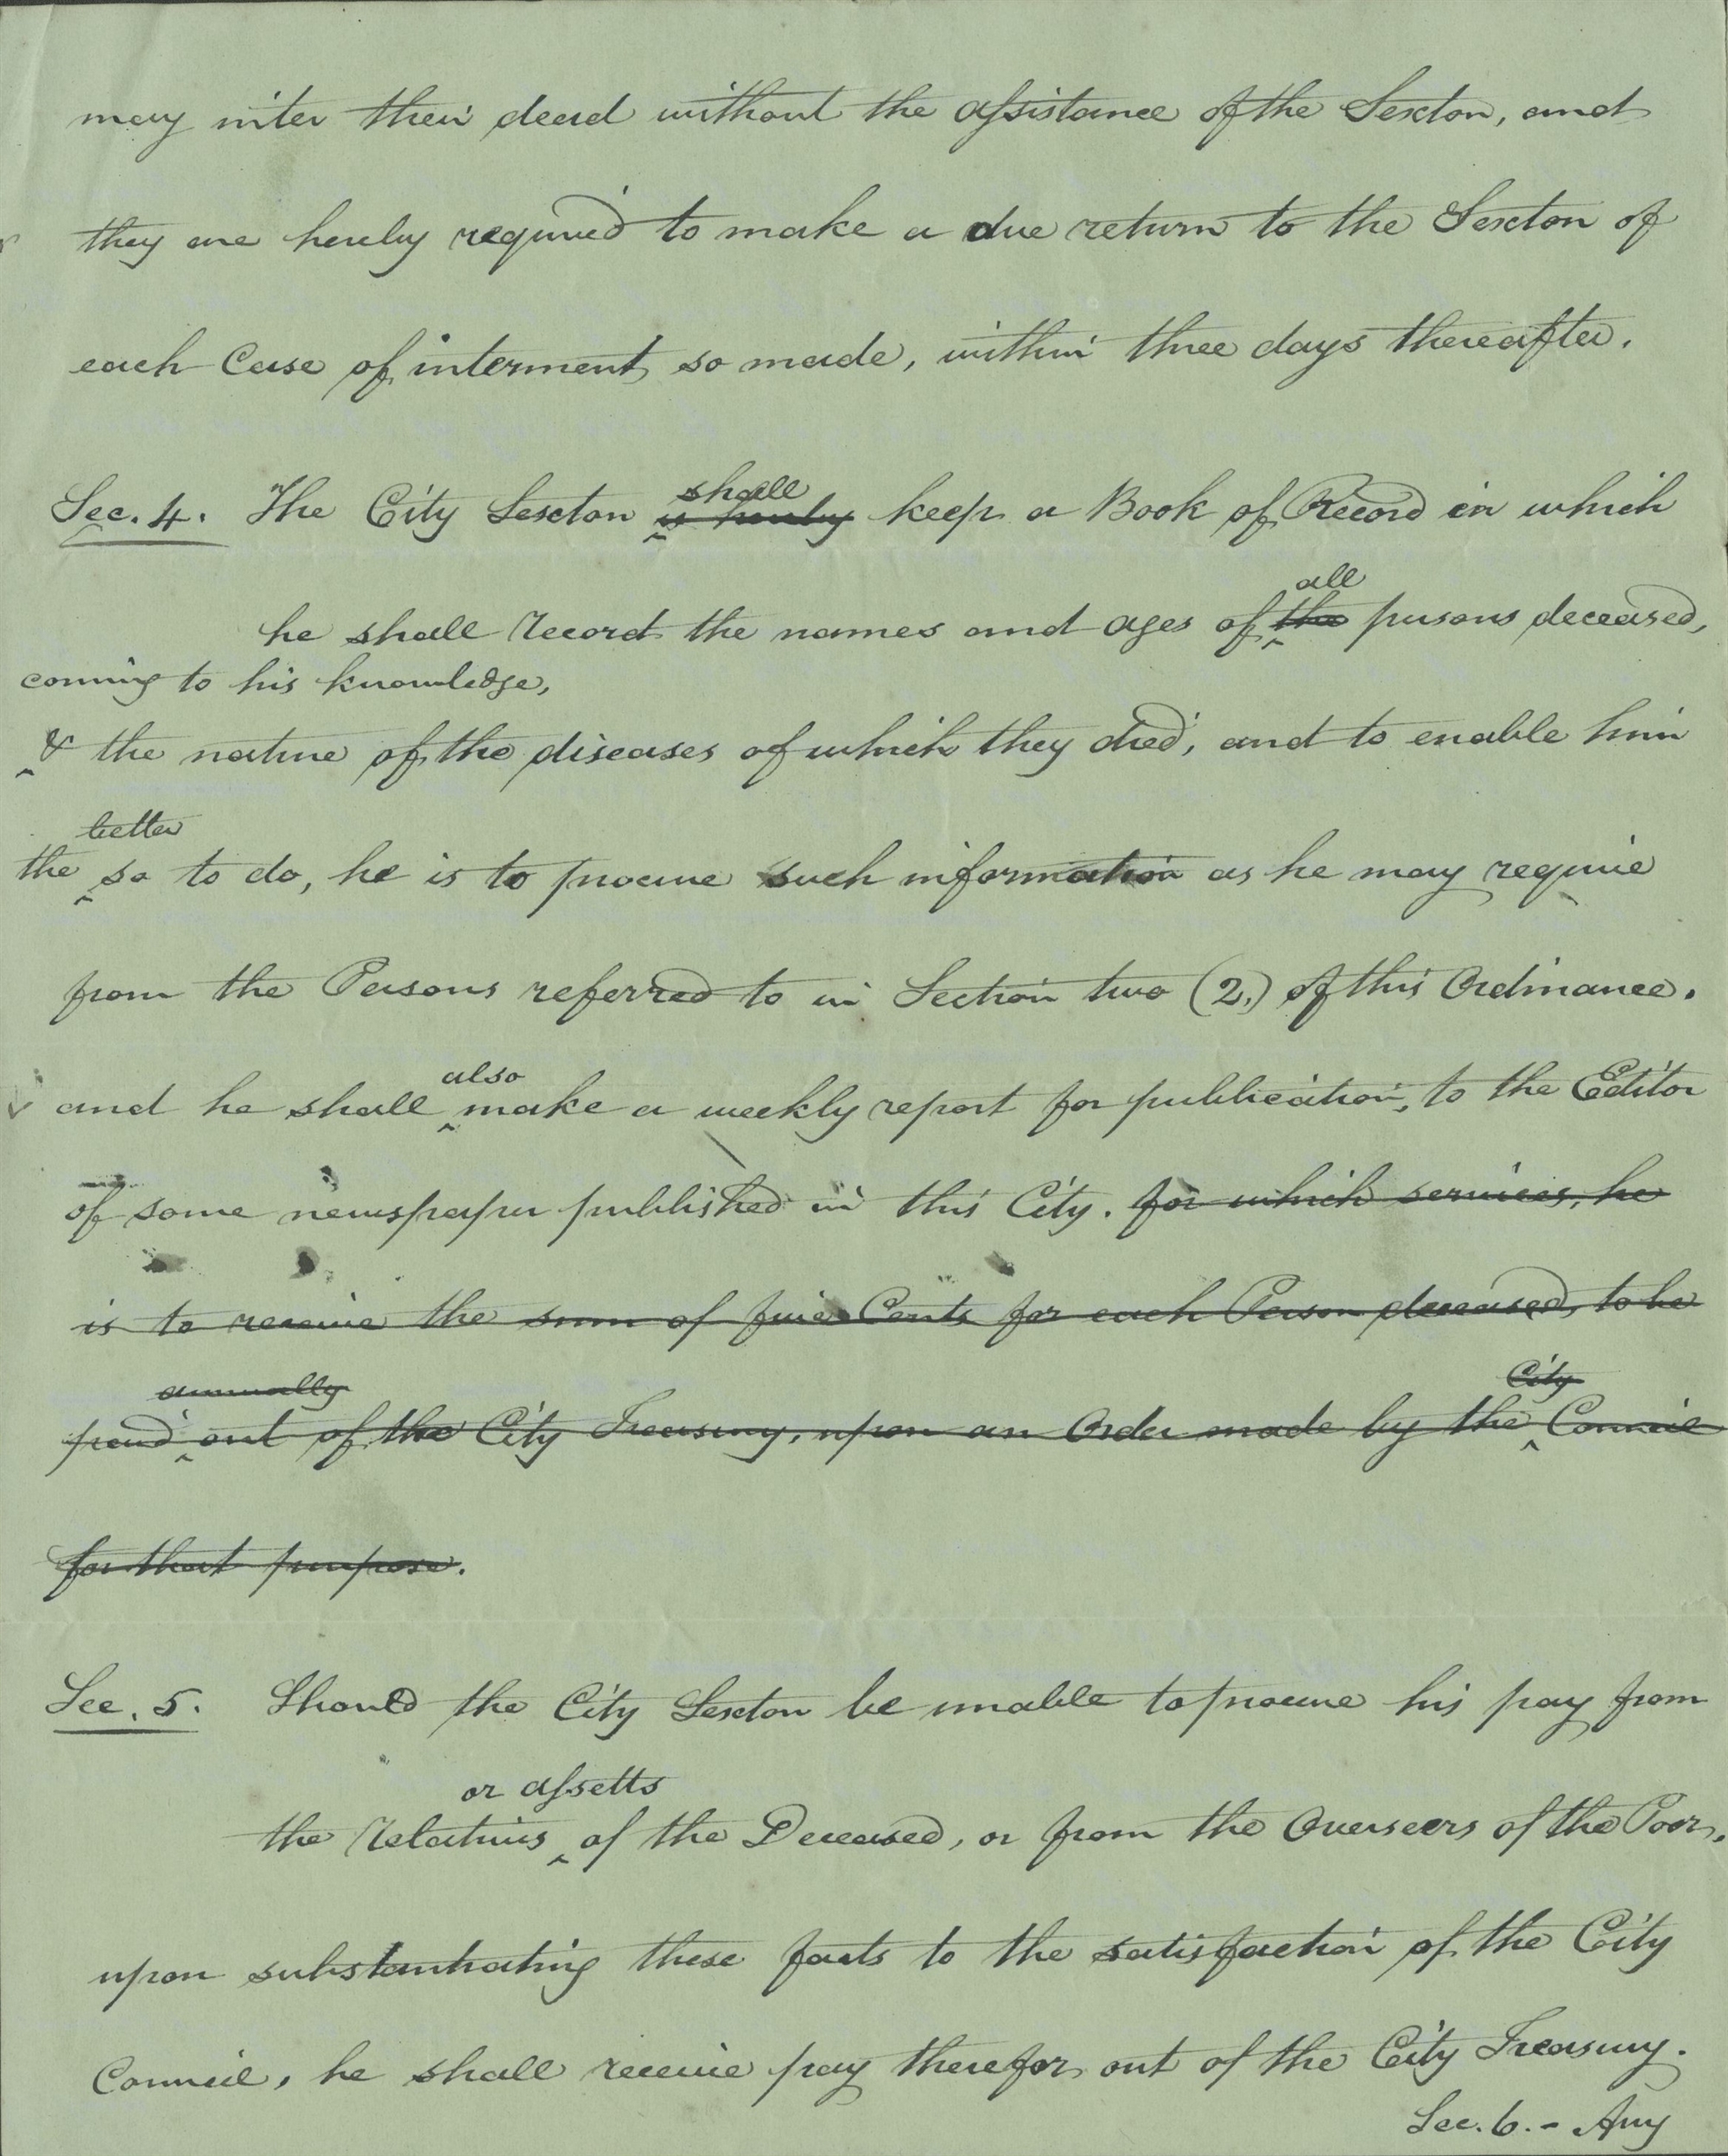 may inter their dead without the assistance of the Sexton, and
they are hereby required to make a due return to the Sexton of
each Case of interment so made, within three days thereafter.
shall
Sec. 4. The City Sexton is hereby keep a Book of Record in which
all
he shall record the names and ages of the persons deceased,
coming to his knowledge,
& the nature of the diseases of which they died, and to enable him
better
the so to do, he is to procure such information as he may require
from the Persons referred to in Section two (2.) of this Ordinance.
also
and he shall make a weekly report for publication, to the Editor
of some newspaper published in this City. for which services, he
is to receive the sum of five Cents for each Person deceased, to be
annually City
paid out of the City Treasury, upon an Order made by the Council
for that purpose.
Sec. 5. Should the City Sexton be unable to procure his pay from
or assetts
the relatives of the Deceased, or from the Overseers of the Poor,
upon substantiating these facts to the satisfaction of the City
Council, he shall receive pay therefor out of the City Treasury.
Sec. 6. - Any